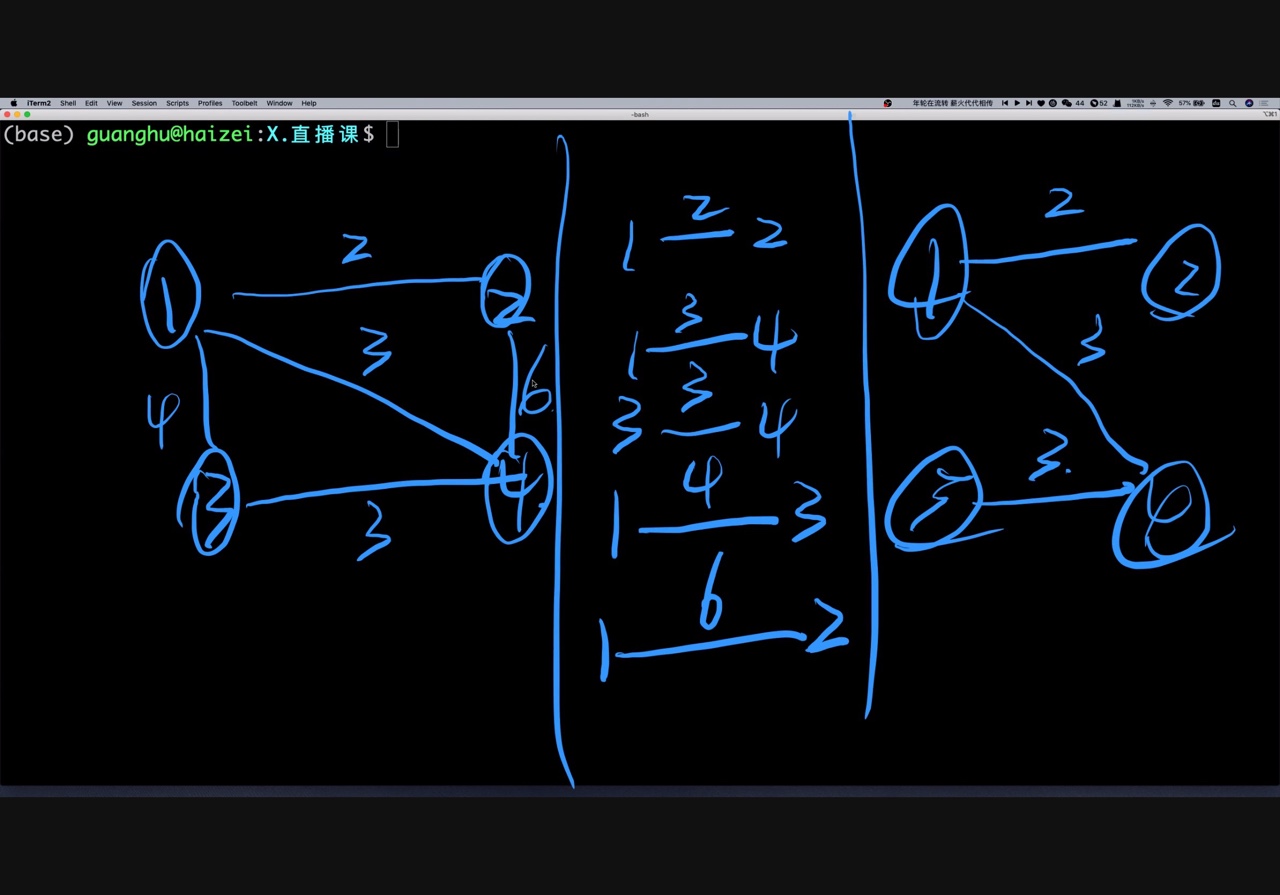 iTerm2 Shell Edit View Session Scripts Profiles Toolbelt Window Help 年轮在流转 薪火代代相传 44 52 57%
-bash
(base) guanghu@haizei:X.直播课$
2
1 2
3
6
4
3 4
3
2
1 2
3
1 4
3
3 4
4
1 3
6
1 2
2
1 2
3
3
3 4